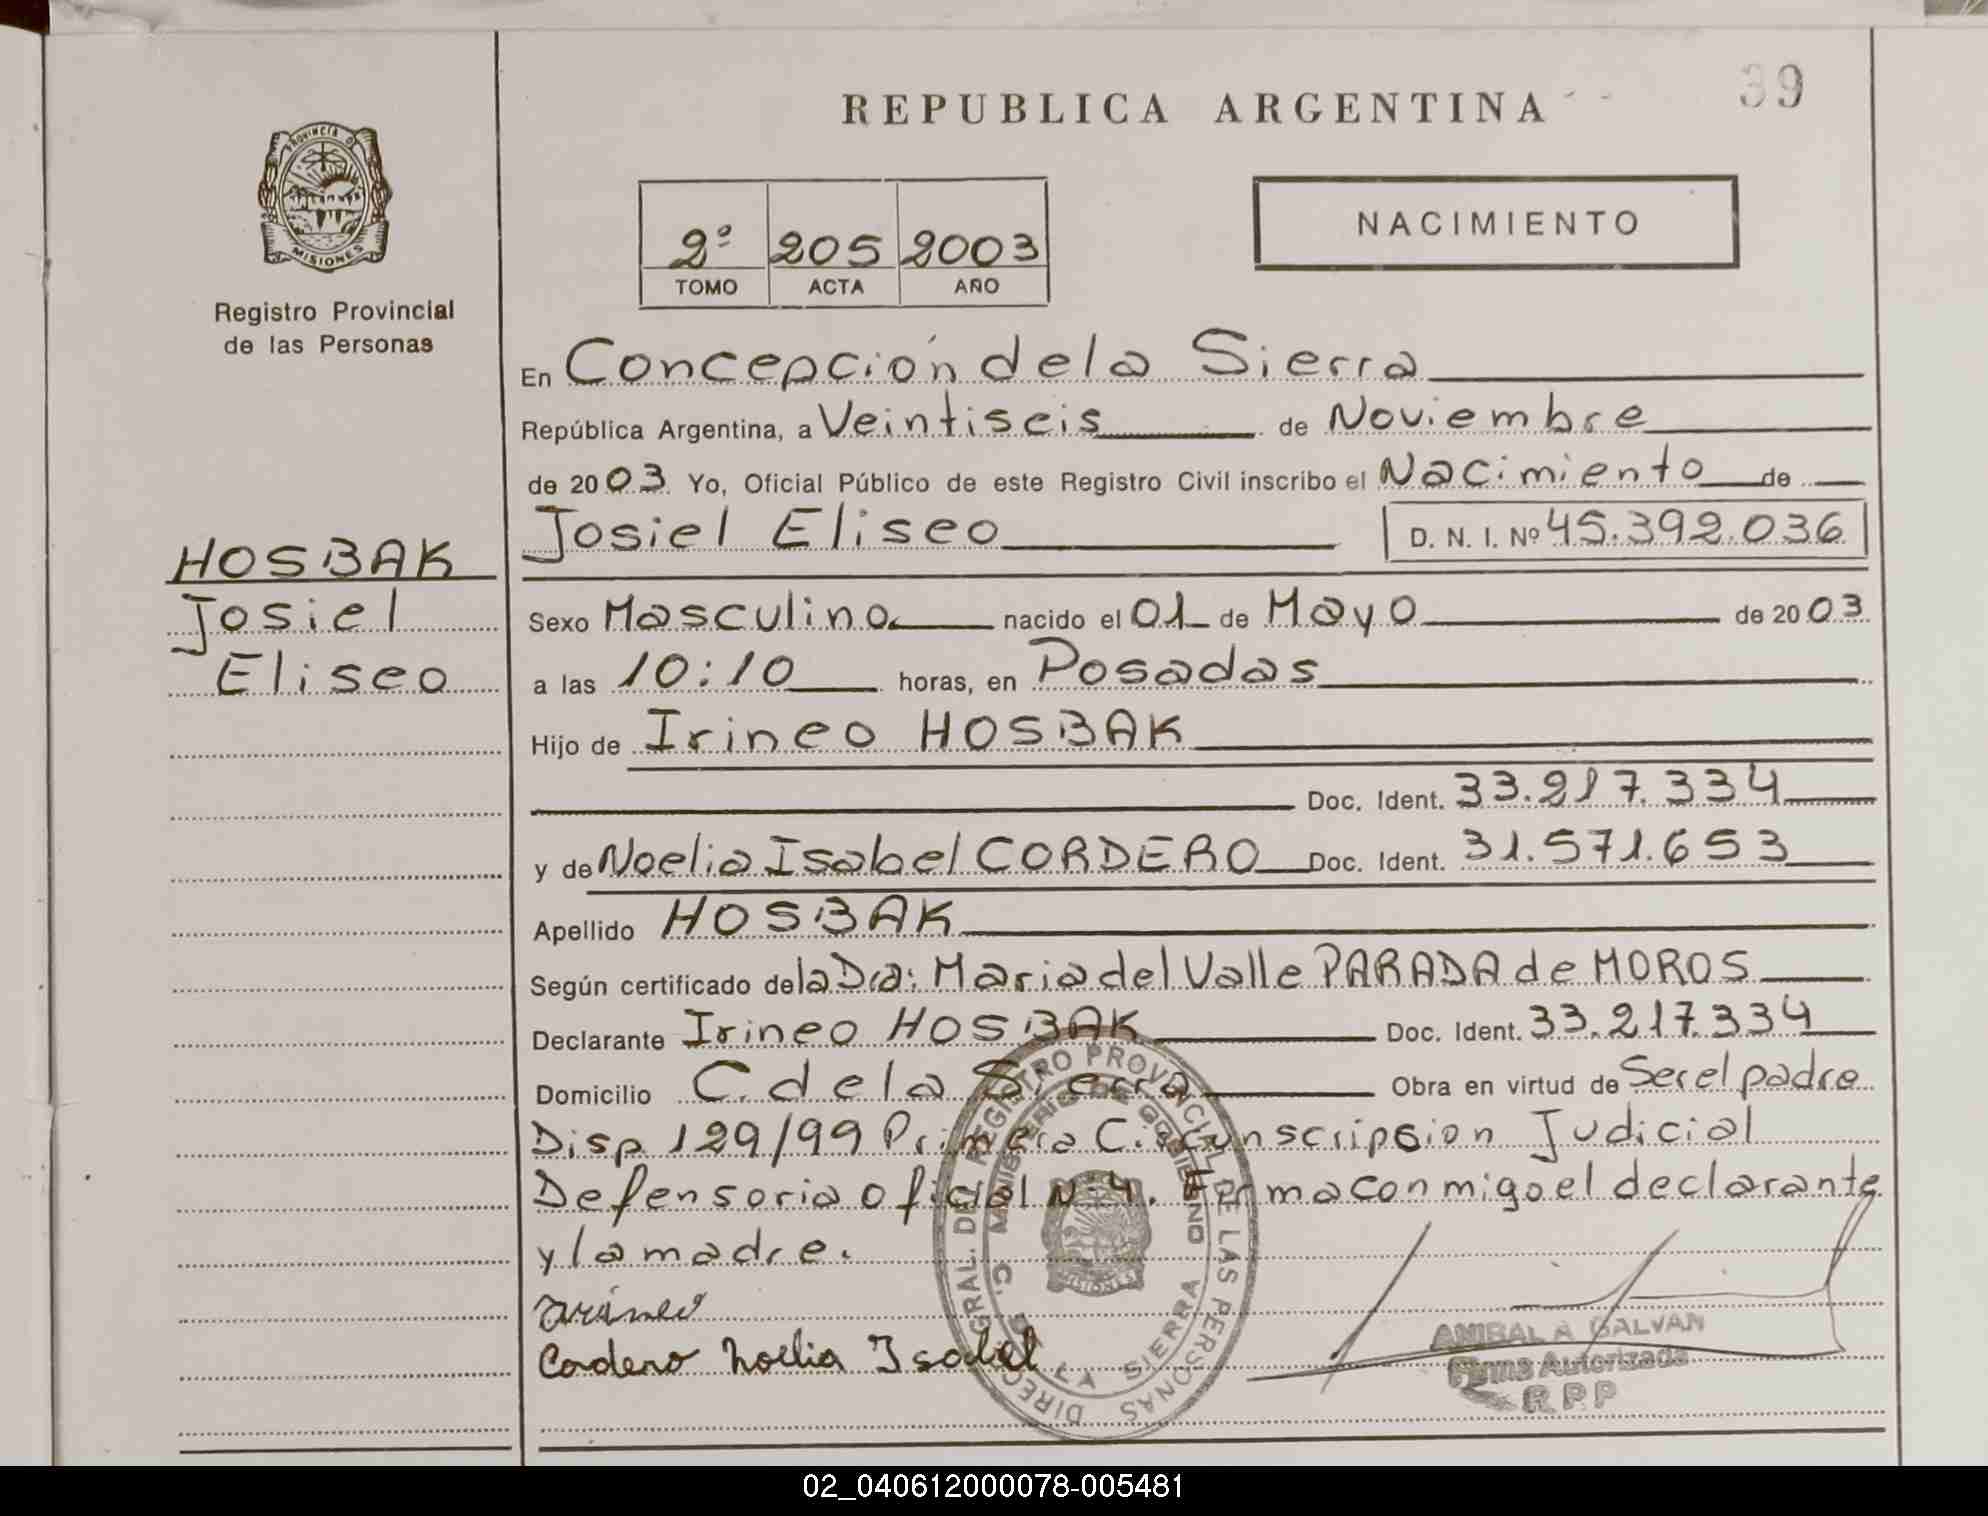 39
REPUBLICA ARGENTINA
PROVINCIA D MISIONES
Registro Provincial
de las Personas
2º 205 2003
TOMO ACTA AÑO
NACIMIENTO
En Concepción de la Sierra
República Argentina, a Veintiseis de Noviembre
de 2003 Yo, Oficial Público de este Registro Civil inscribo el Nacimiento de
Josiel Eliseo D. N. I. Nº 45.392.036
HOSBAK
Josiel
Eliseo
Sexo Masculino nacido el 01 de Mayo de 2003
a las 10:10 horas, en Posadas
Hijo de Irineo HOSBAK
Doc. Ident. 33.217.334
y de Noelia Isabel CORDERO Doc. Ident. 31.571.653
Apellido HOSBAK
Según certificado de la Dra: Maria del Valle PARADA de MOROS
Declarante Irineo HOSBAK Doc. Ident. 33.217.334
Domicilio C. de la Sierra Obra en virtud de Ser el padre
Disp 129/99 Primera Circunscripcion Judicial
Defensoria Oficial Nº 4. Firma conmigo el declarante
y la madre.
irineo
Cordero Noelia Isabel
DIREC. GRAL. DEL REGISTRO PROVINCIAL DE LAS PERSONAS
MINISTERIO DE GOBIERNO
C. DE LA SIERRA
MISIONES
ANIBAL A GALVAN
Firma Autorizada
R.P.P
02_040612000078-005481